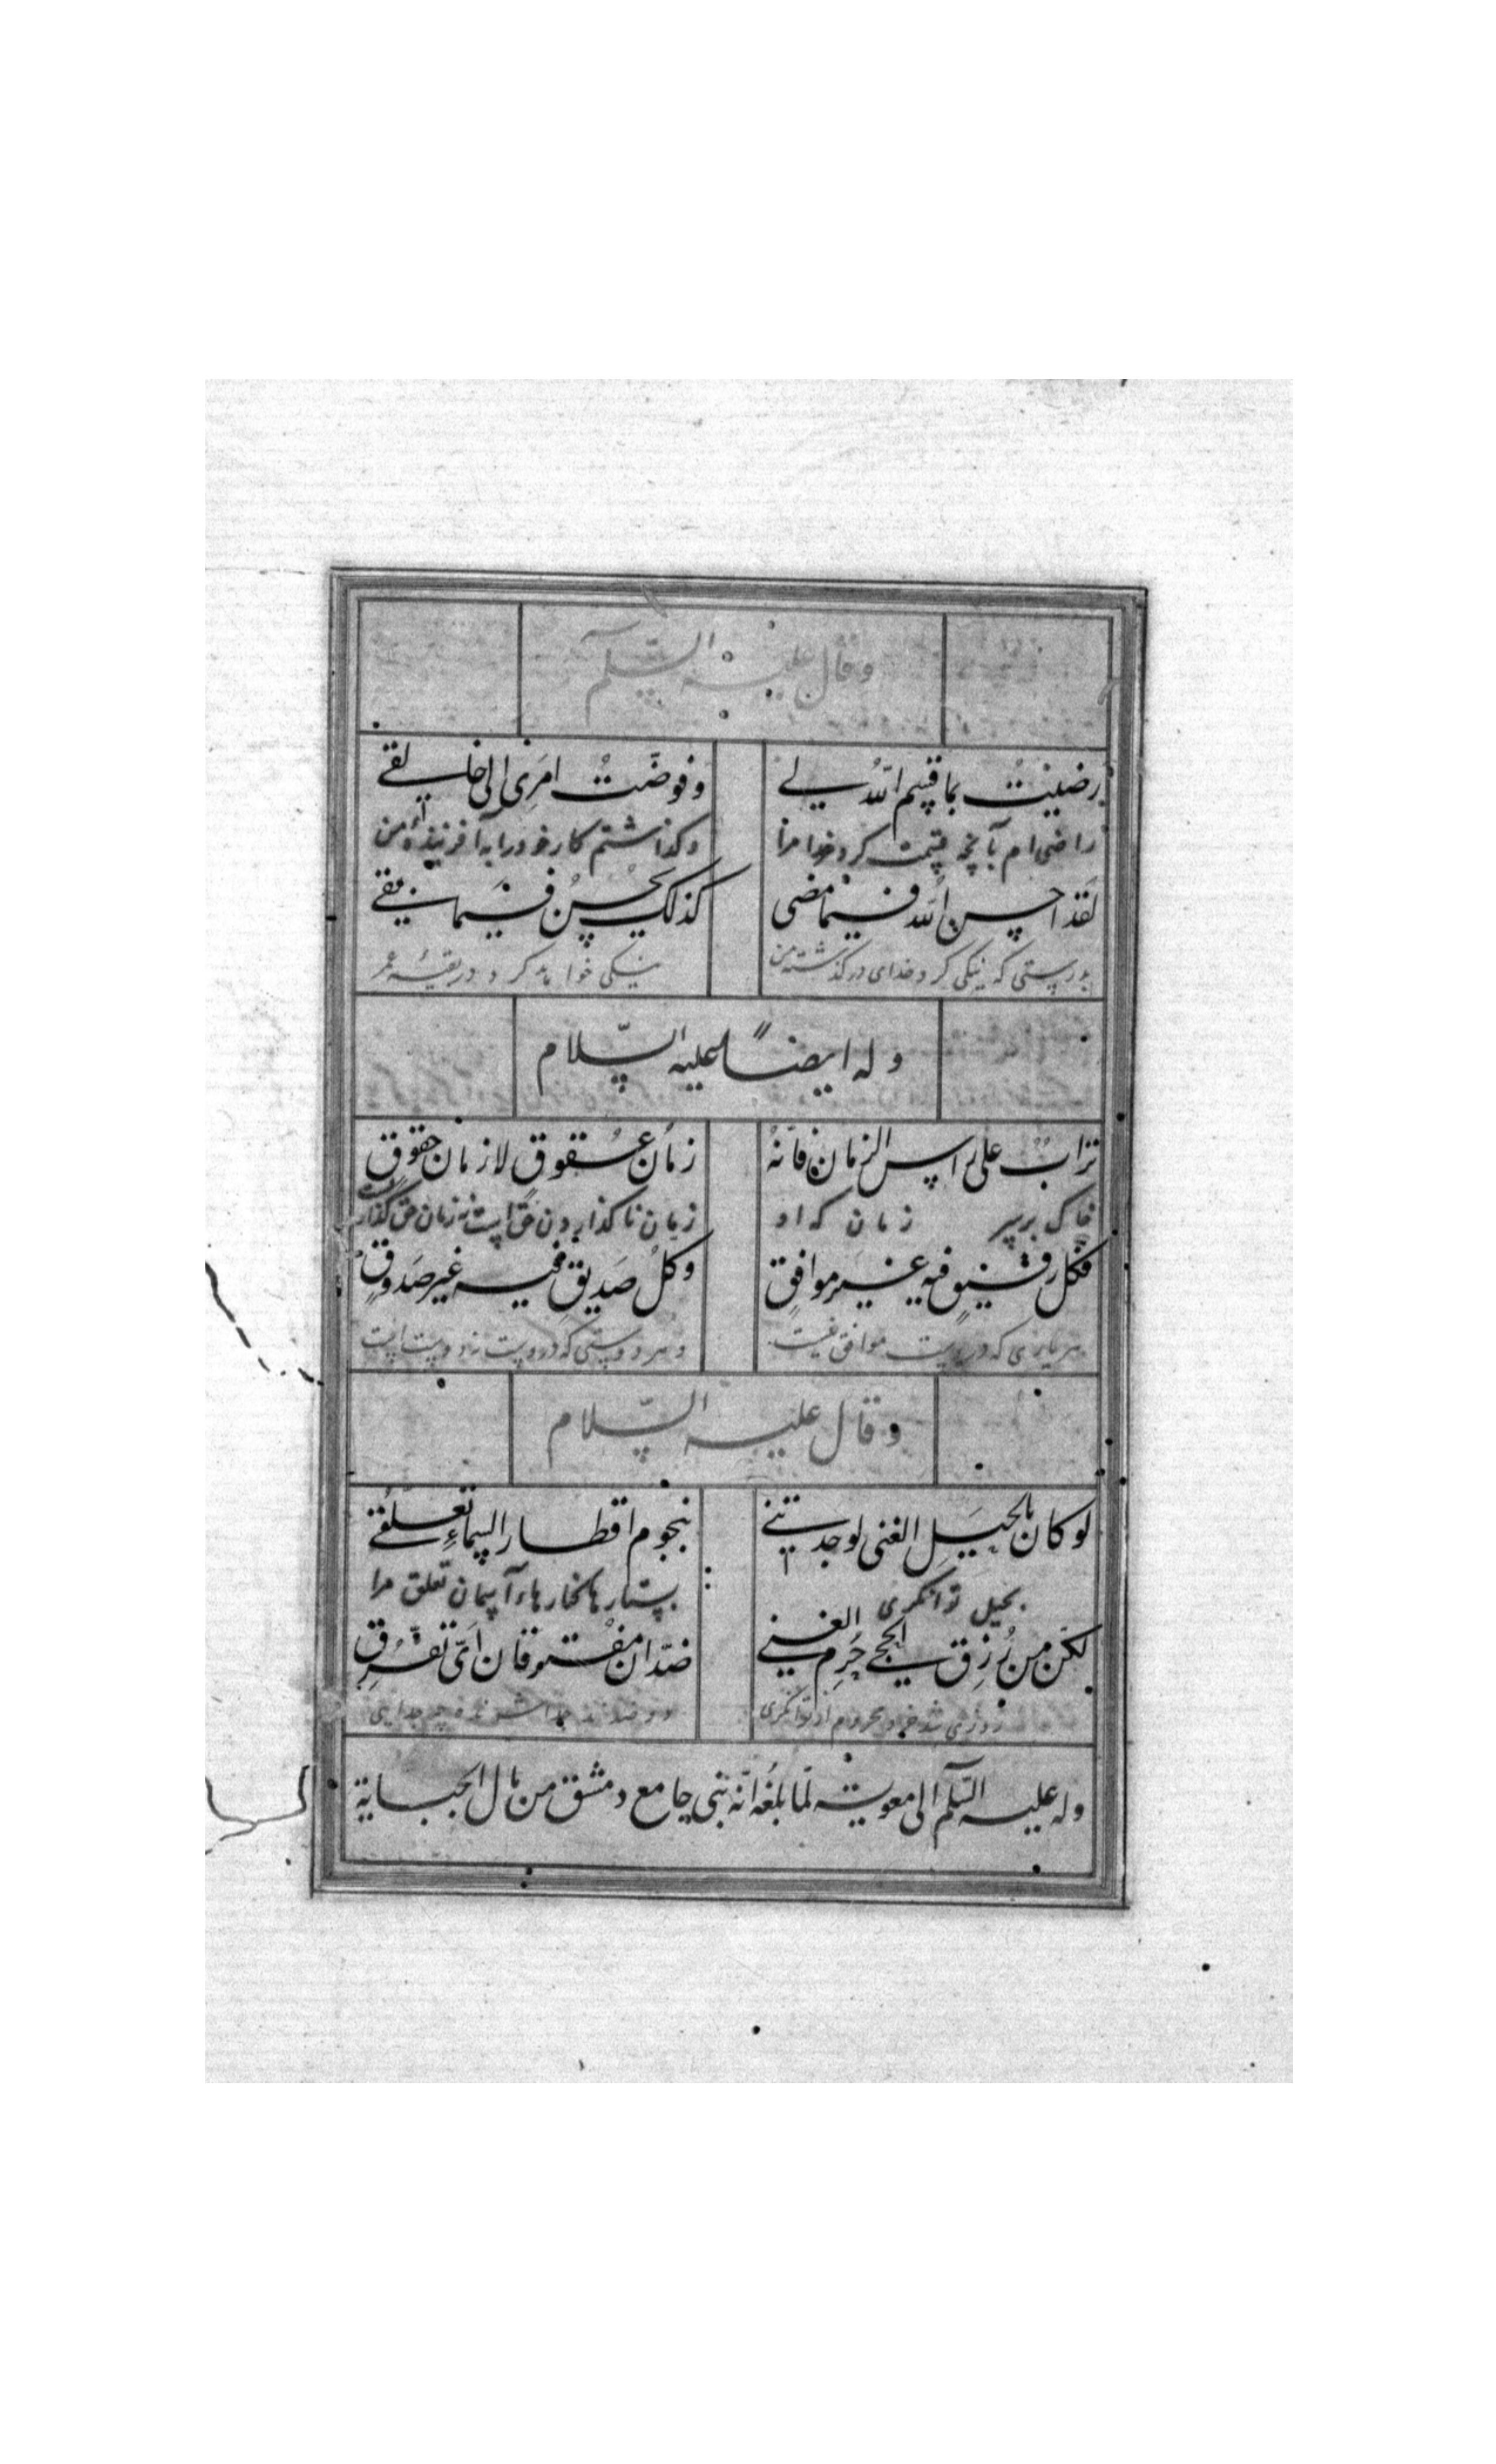 وقال عليه السلم
رضيت بما قسم الله لي وفوضت امري الى خالقي
راضی ام بآنچه قسمت کرد خدا مرا وکذاشتم کار خود را به آفرینندهٔ من
لقد احسن الله فيما مضى كذلك يحسن فيما بقي
بدرستی که نیکی کرد خدای در کذشته من نیکی خواهد کرد در بقیهٔ عمر
وله ايضاً عليه السّلام
تراب على راس الزمان فانّه زمان عقوق لا زمان حقوق
خاک بر سر زمان که او زمان نا کذاردن حق است نه زمان حق گذاریست
فكل رفيق فيه غير موافق وكل صديق فيه غير صدوق
هر یاری که دروست موافق نیست و هر دوستی که دروست نه دوست است
وقال عليه السّلام
لو كان بالحيل الغنى لوجدتني بنجوم اقطار السماء تعلّقي
بحیل توانکری بستارها کنارهاء آسمان تعلق مرا
لكن من رزق الحجى حرم الغنى ضدّان مفترقان ايّ تفرّق
روزی شد خرد محروم از توانکری دو ضدند جدا شونده چه جدایی
وله عليه السّلم الى معوية لمّا بلغه انّه بنى جامع دمشق من مال الجباية